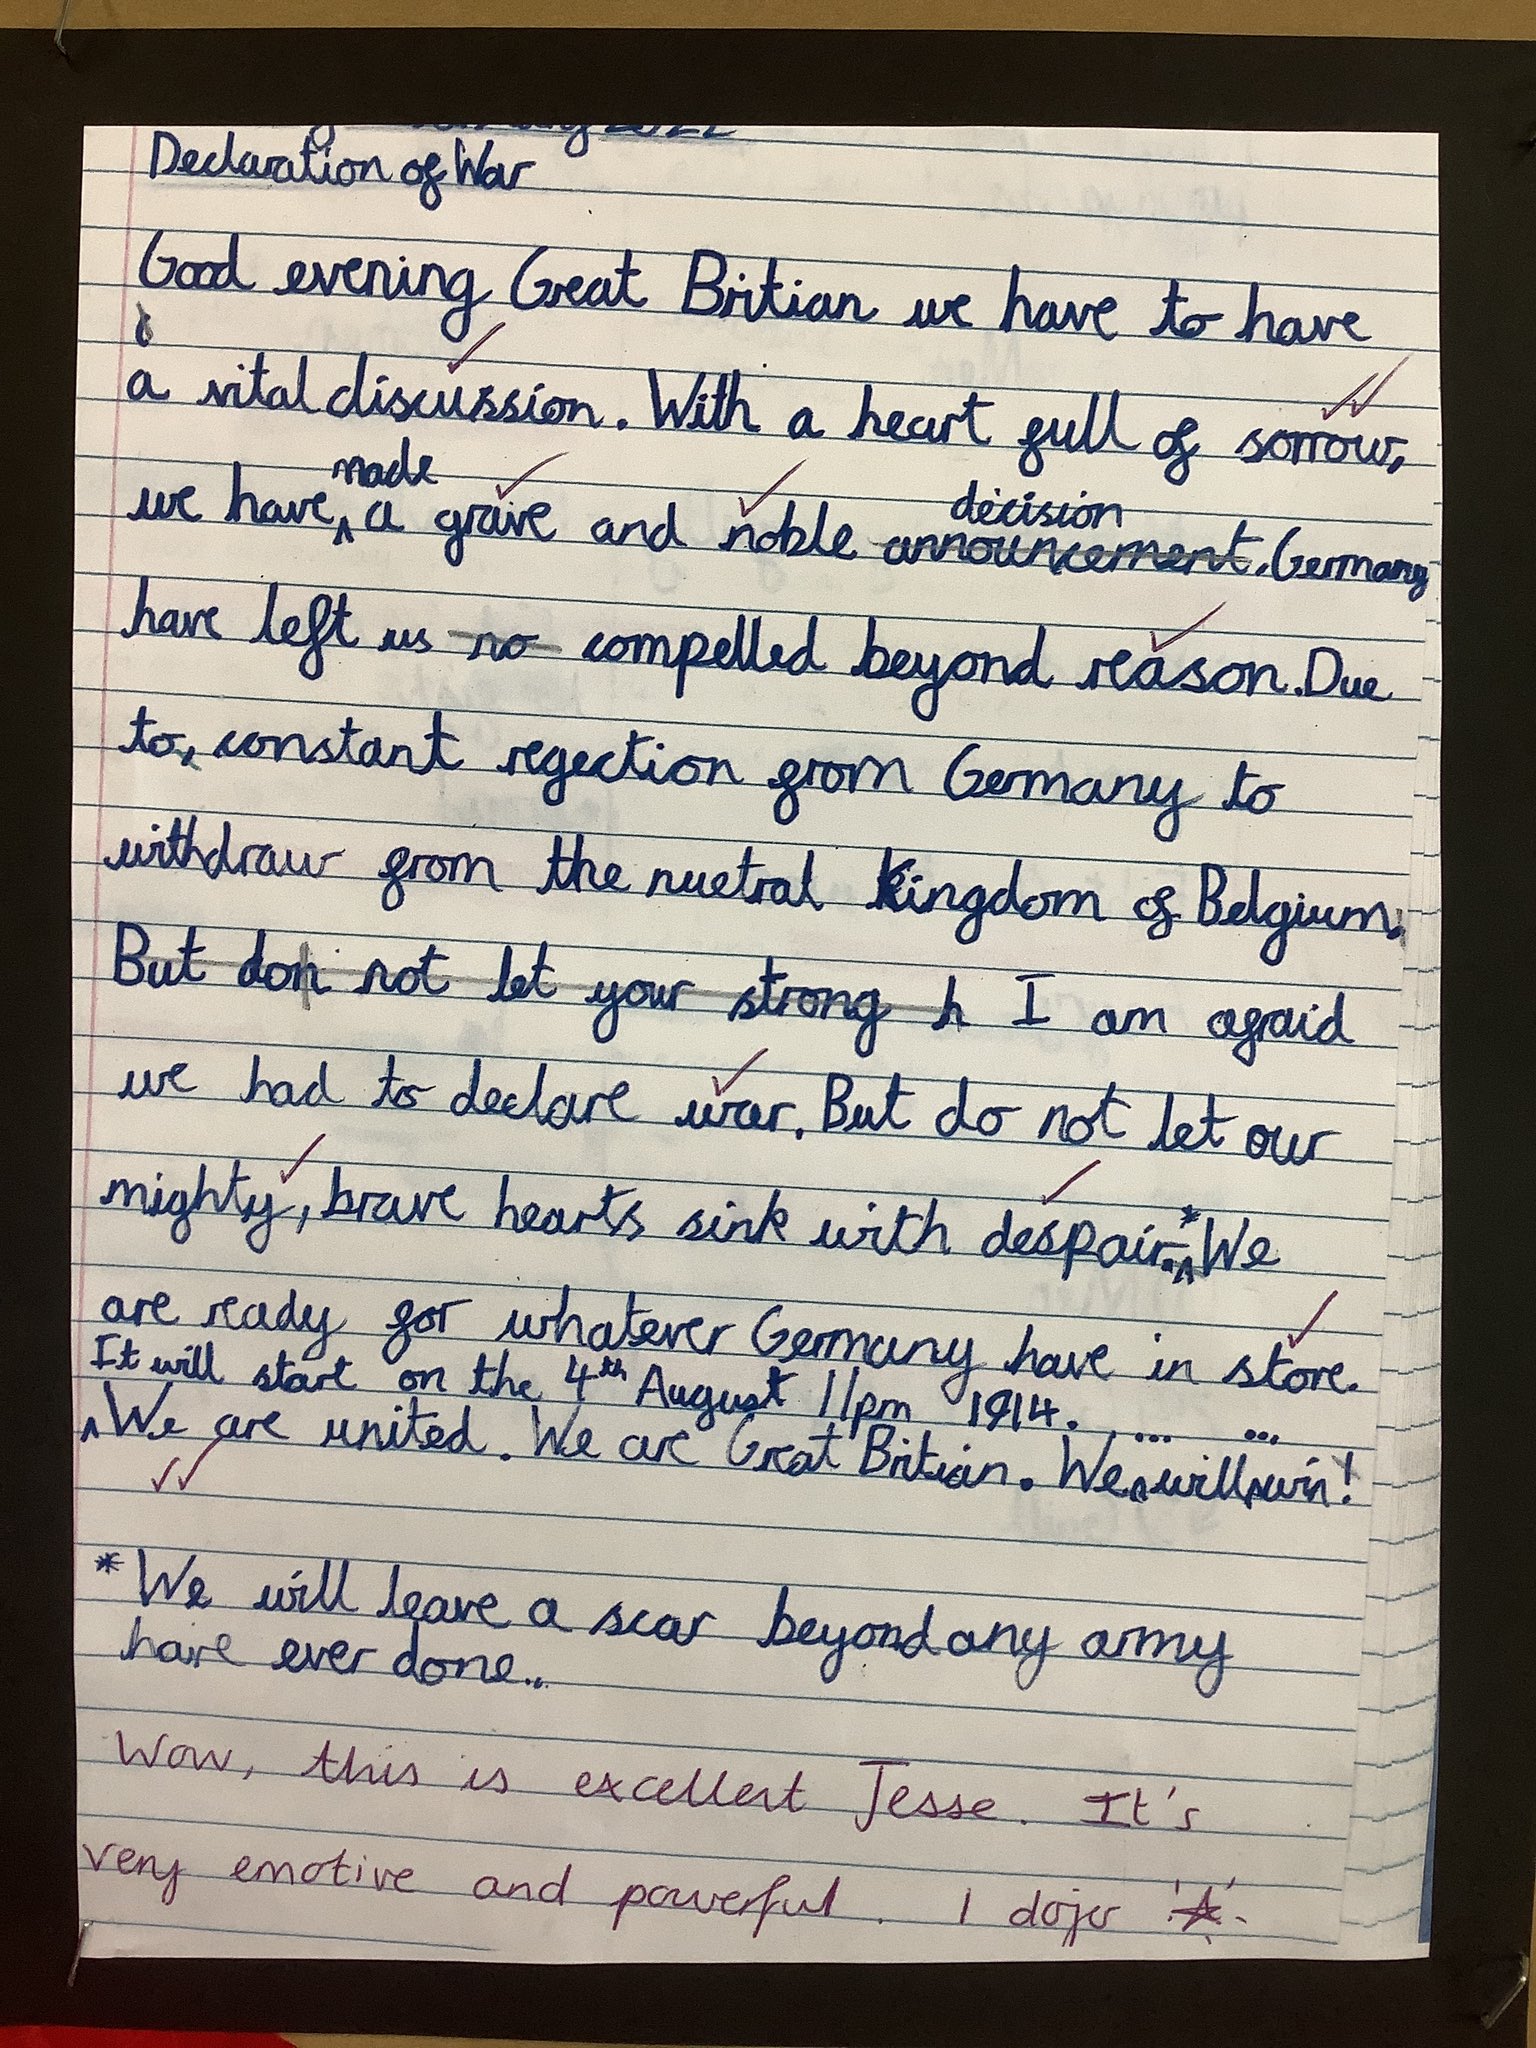 2022
Declaration of War
Good evening Great Britian we have to have
a vital discussion. With a heart full of sorrow,
made decision
we have, ^ a grave and noble announcement. Germany
have left us no compelled beyond reason. Due
to, constant regection from Germany to
withdraw from the nuetral Kingdom of Belgium.
But don not let your strong h I am afraid
we had to declare war. But do not let our
mighty, brave hearts sink with despair.*^ We
are ready for whatever Germany have in store.
It will start on the 4th August 11pm 1914. ... ...
^We are united. We are Great Britian. We^will^win!
*We will leave a scar beyond any army
have ever done...
Wow, this is excellent Jesse. It's
very emotive and powerful. 1 dojo